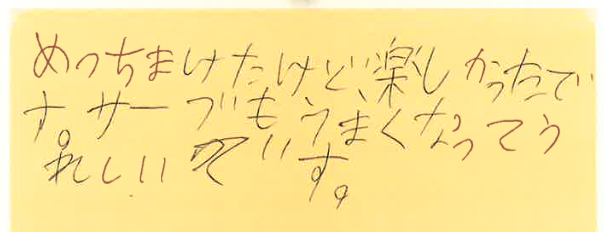 めっちまけたけど、楽しかったで
す。サーブもうまくなってう
れしいです。